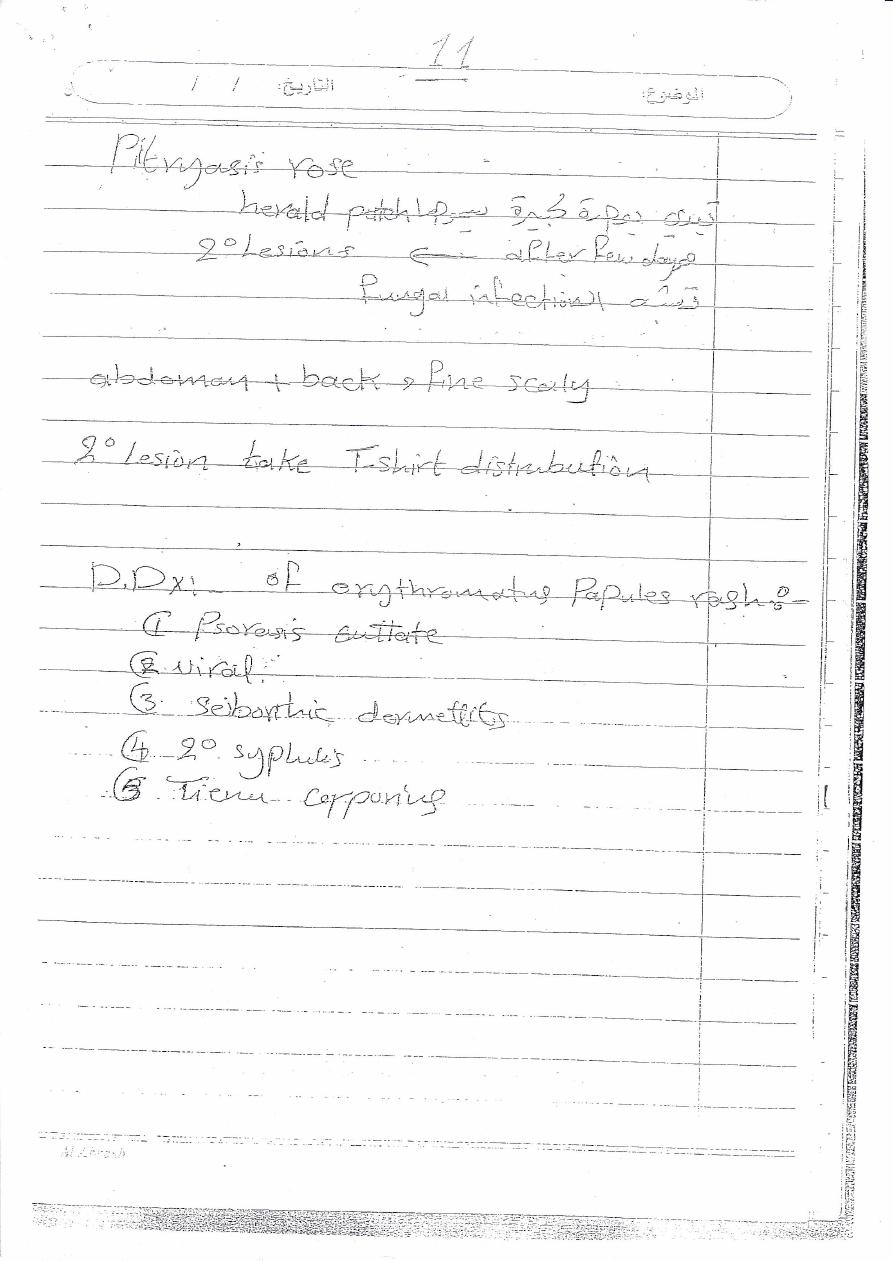 11
الموضوع: التاريخ: / /
Pitryasis rose
تبدى ببقعة كبيرة نسميها herald patch
after few days ← 2° Lesions
تشبه الـ fungal infection
abdoman + back و fine scaly
2° lesion take T-shirt distribution
D.Dx: of erythromatus Papules rash :-
① Psorasis guttate
② viral
③ Seiborrhic dermetits
④ 2° syphulis
⑤ Tienu corporing
Al Ebrash